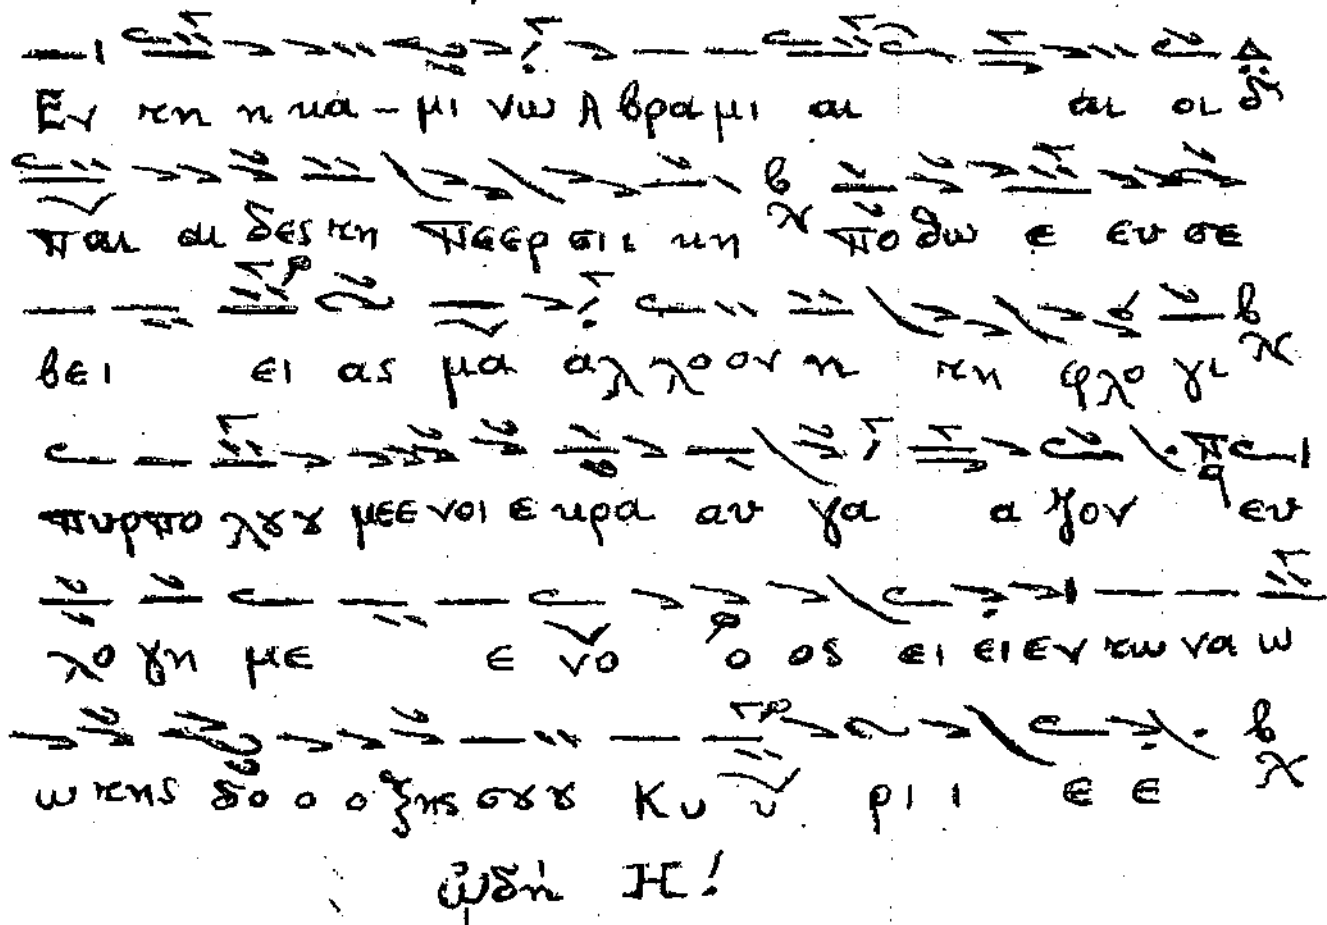 Εν τη η κα - μι νω Α βρα μι αι αι οι δ
παι αι δες τη Πεερσιι κη πο θω ε ευ σε
βει ει ας μα αλλοον η τη φλο γι
πυρπο λȣȣ μεε νοι ε κρα αυ γα α ζον ευ
λο γη με ε νο ο ος ει ει εν τω να ω
ω της δο ο ο ξης σȣȣ Κυ υ ρι ι ε ε
ᾠδὴ Η!